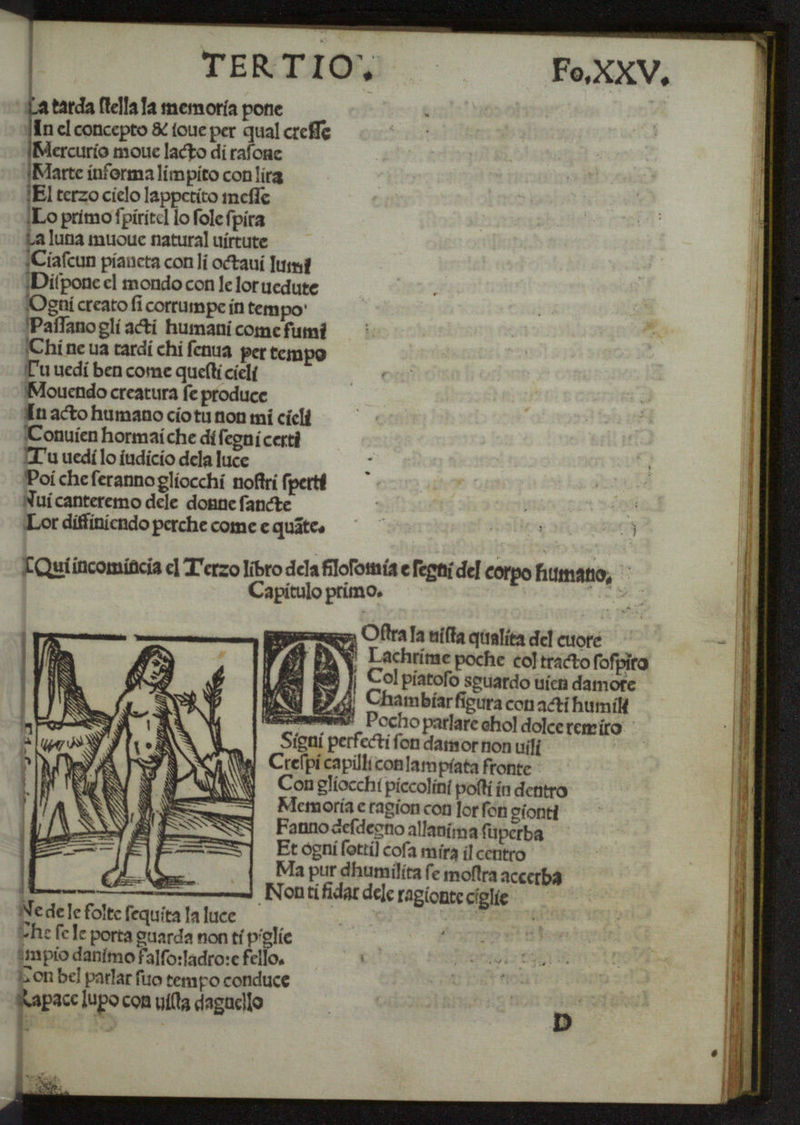 TERTIO.
Fo.XXV.
La tarda ſtella la memoria pone
In el concepto & ioue per qual creſſe
Mercurio moue lacto di raſone
Marte informa limpito con lira
El terzo cielo lappetito meſſe
Lo primo ſpiritel lo ſole ſpira
La luna muoue natural uirtute
Ciaſcun pianeta con li octaui lumi
Diſpone el mondo con le lor uedute
Ogni creato ſi corrumpe in tempo
Paſſano gli acti humani come fumi
Chi ne ua tardi chi ſenua per tempo
Tu uedi ben come queſti cieli
Mouendo creatura ſe produce
In acto humano cio tu non mi cieli
Conuien hormai che di ſegni certi
Tu uedi lo iudicio dela luce
Poi che ſeranno gliocchi noſtri ſperti
Nui canteremo dele donne ſancte
Lor diffiniendo perche come e quāte.
Qui incomincia el Terzo libro dela filoſomia e ſegni del corpo humano,
Capitulo primo.
MOſtra la uiſta qualita del cuore
Lachrime poche col tracto ſoſpiro
Col piatoſo sguardo uien damore
Chambiar figura con acti humili
Pocho parlare chol dolce remiro
Signi perfecti ſon damor non uili
Creſpi capilli con lampiata fronte
Con gliocchi piccolini poſti in dentro
Memoria e ragion con lor ſon gionti
Fanno deſdegno allanima ſuperba
Et ogni ſottil coſa mira il centro
Ma pur dhumilita ſe moſtra accerba
Non ti fidar dele ragionte ciglie
Ne de le folte ſequita la luce
Che ſe le porta guarda non ti piglie
Impio danimo falſo:ladro:e fello.
Con bel parlar ſuo tempo conduce
Rapace lupo con uiſta dagnello
D